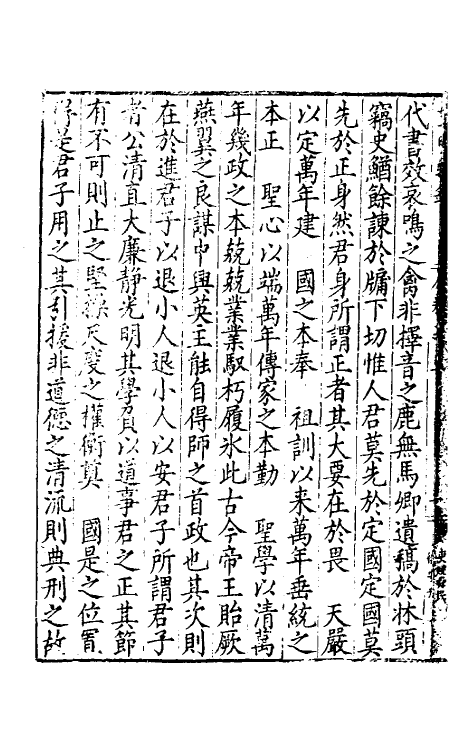 代書效哀鳴之禽非擇音之鹿無馬卿遺稿於牀頭
竊史鰌餘諫於牖下切惟人君莫先於定國定國莫
先於正身然君身所謂正者其大要在於畏　天嚴
以定萬年建　國之本奉　祖訓以来萬年垂統之
本正　聖心以端萬年傳家之本勤　聖學以清萬
年幾政之本兢兢業業馭朽履氷此古今帝王貽厥
燕翼之良謀中興英主能自得師之首政也其次則
在於進君子以退小人退小人以安君子所謂君子
者公清直大廉靜光明其學負以道事君之正其節
有不可則止之堅操尺度之權衡奠　國是之位置
是君子用之其引援非道德之清流則典刑之故